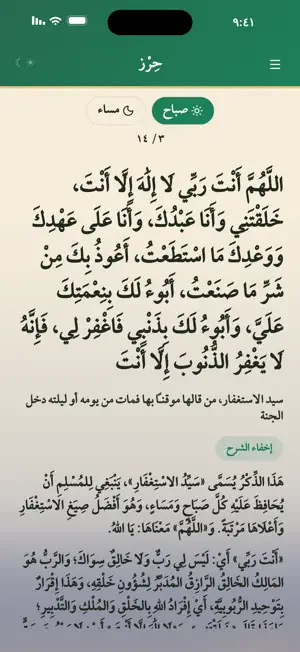 ٩:٤١
حِرْز
صباح
مساء
٣ / ١٤
اللَّهُمَّ أَنْتَ رَبِّي لَا إِلَٰهَ إِلَّا أَنْتَ،
خَلَقْتَنِي وَأَنَا عَبْدُكَ، وَأَنَا عَلَى عَهْدِكَ
وَوَعْدِكَ مَا اسْتَطَعْتُ، أَعُوذُ بِكَ مِنْ
شَرِّ مَا صَنَعْتُ، أَبُوءُ لَكَ بِنِعْمَتِكَ
عَلَيَّ، وَأَبُوءُ لَكَ بِذَنْبِي فَاغْفِرْ لِي، فَإِنَّهُ
لَا يَغْفِرُ الذُّنُوبَ إِلَّا أَنْتَ
سيد الاستغفار، من قالها موقنًا بها فمات من يومه أو ليلته دخل
الجنة
إخفاء الشرح
هَذَا الذِّكْرُ يُسَمَّى «سَيِّدُ الِاسْتِغْفَارِ»، يَنْبَغِي لِلْمُسْلِمِ أَنْ
يُحَافِظَ عَلَيْهِ كُلَّ صَبَاحٍ وَمَسَاءٍ، وَهُوَ أَفْضَلُ صِيَغِ الِاسْتِغْفَارِ
وَأَعْلَاهَا مَرْتَبَةً. وَ«اللَّهُمَّ» مَعْنَاهَا: يَا اللهُ.
«أَنْتَ رَبِّي» أَيْ: لَيْسَ لِي رَبٌّ وَلَا خَالِقٌ سِوَاكَ؛ وَالرَّبُّ هُوَ
المَالِكُ الخَالِقُ الرَّازِقُ المُدَبِّرُ لِشُؤُونِ خَلْقِهِ، وَهَذَا إِقْرَارٌ
بِتَوْحِيدِ الرُّبُوبِيَّةِ، أَيْ إِفْرَادُ اللهِ بِالخَلْقِ وَالمُلْكِ وَالتَّدْبِيرِ؛